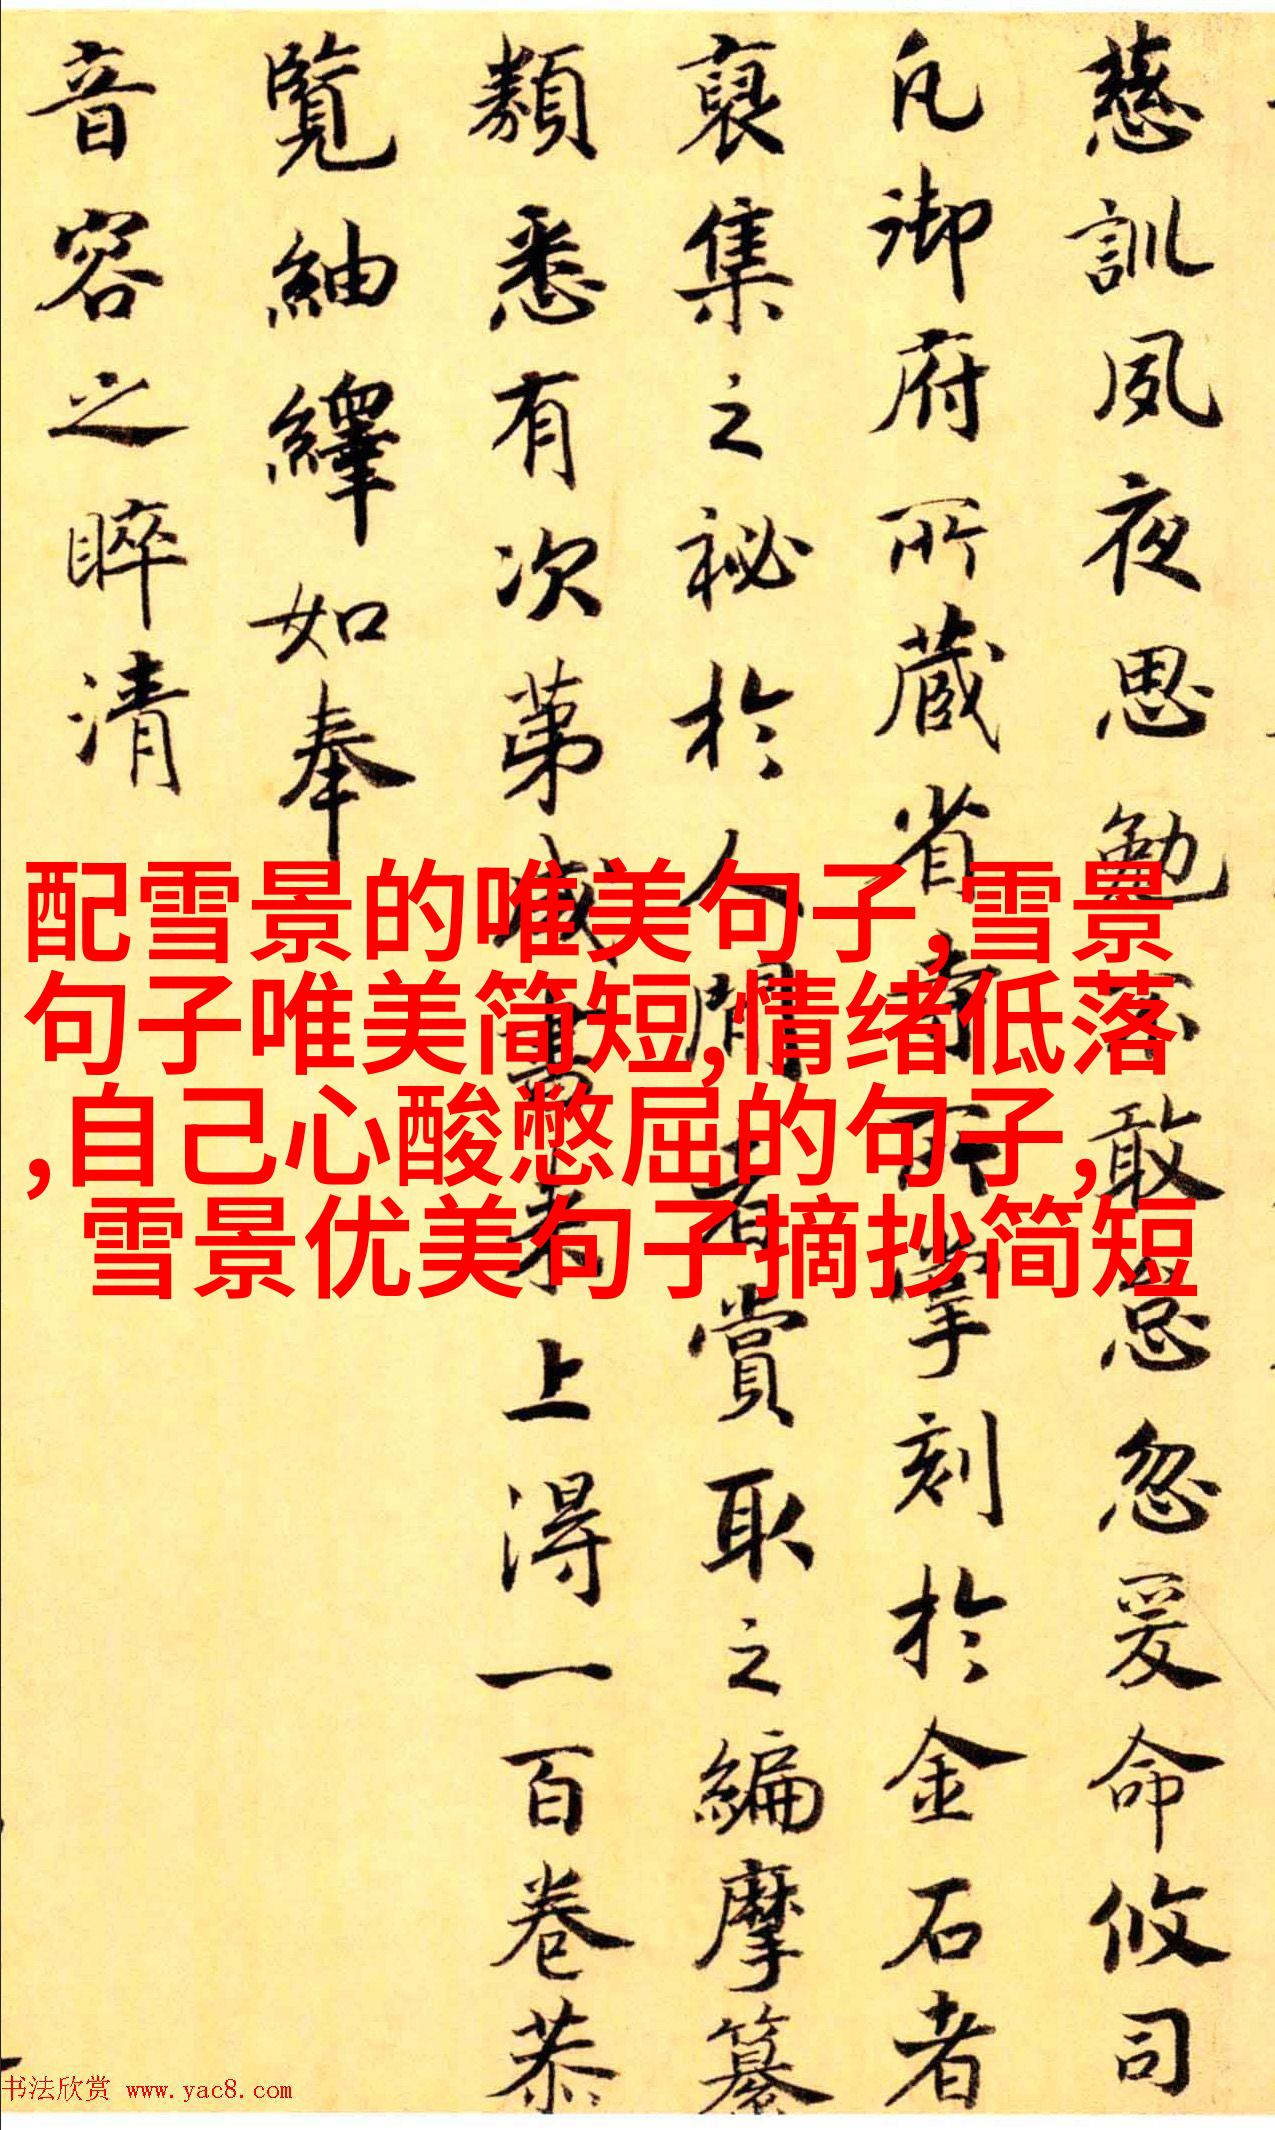 慈訓夙夜思勉不敢怠忽爰命攸司
凡御府所藏省寺所掌刻於金石者
裒集之祕於人間者賞取之編摩纂
類悉有次第咸來上得一百卷恭
覽紬繹如奉
音容之睟清
配雪景的唯美句子,雪景
句子唯美简短,情绪低落
,自己心酸憋屈的句子,
雪景优美句子摘抄简短
书法欣赏 www.yac8.com